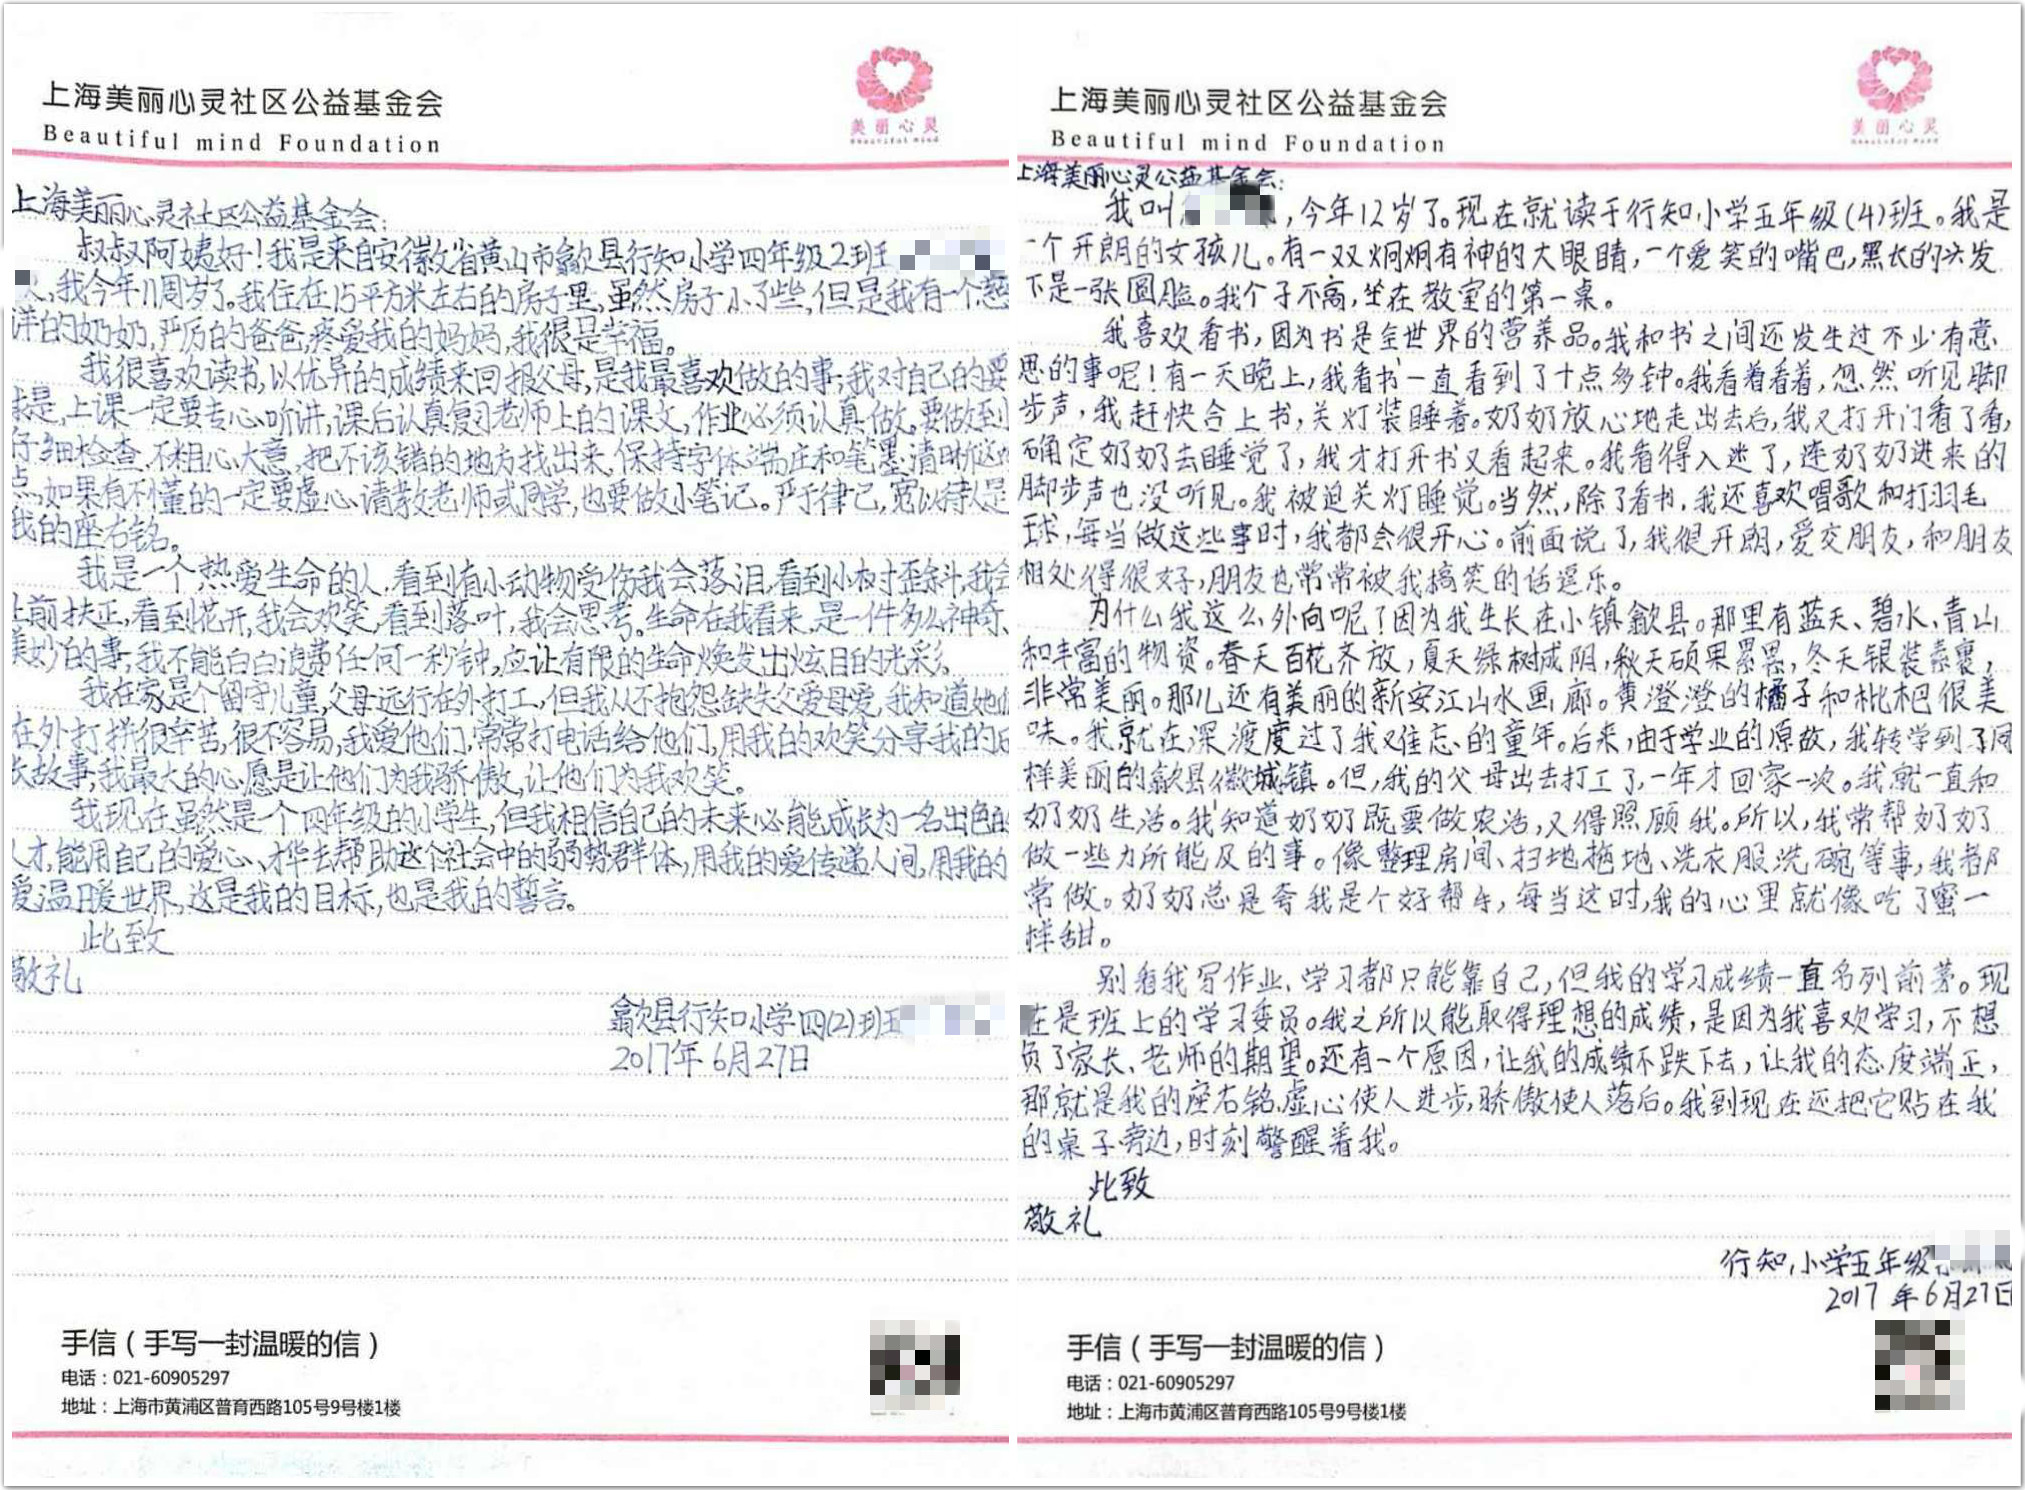 上海美丽心灵社区公益基金会
Beautiful mind Foundation
美丽心灵
Beautiful mind
上海美丽心灵社区公益基金会:
叔叔阿姨好!我是来自安徽省黄山市歙县行知小学四年级2班
我今年11周岁了。我住在15平方米左右的房子里,虽然房子小了些,但是我有一个慈
洋的奶奶,严厉的爸爸,疼爱我的妈妈,我很是幸福。
我很喜欢读书,以优异的成绩来回报父母,是我最喜欢做的事;我对自己的要
求是,上课一定要专心听讲,课后认真复习老师上的课文,作业必须认真做,要做到
仔细检查,不粗心大意,把不该错的地方找出来,保持字体端庄和笔墨清晰这
点,如果有不懂的一定要虚心请教老师或同学,也要做小笔记。严于律己,宽以待人是
我的座右铭。
我是一个热爱生命的人,看到有小动物受伤我会落泪,看到小树歪斜,我会
上前扶正,看到花开,我会欢笑,看到落叶,我会思考。生命在我看来,是一件多么神奇、
美妙的事,我不能白白浪费任何一秒钟,应让有限的生命焕发出炫目的光彩。
我在家是个留守儿童,父母远行在外打工,但我从不抱怨缺失父爱母爱,我知道她们
在外打拼很辛苦,很不容易,我爱他们,常常打电话给他们,用我的欢笑分享我的成
长故事,我最大的心愿是让他们为我骄傲,让他们为我欢笑。
我现在虽然是一个四年级的小学生,但我相信自己的未来必能成长为一名出色的
人才,能用自己的爱心、才华去帮助这个社会中的弱势群体,用我的爱传递人间,用我的
爱温暖世界,这是我的目标,也是我的誓言。
此致
敬礼
歙县行知小学四(2)班
2017年6月27日
手信(手写一封温暖的信)
电话:021-60905297
地址:上海市黄浦区普育西路105号9号楼1楼
上海美丽心灵社区公益基金会
Beautiful mind Foundation
美丽心灵
Beautiful mind
上海美丽心灵公益基金会:
我叫,今年12岁了。现在就读于行知小学五年级(4)班。我是
一个开朗的女孩儿。有一双炯炯有神的大眼睛,一个爱笑的嘴巴,黑长的头发
下是一张圆脸。我个子不高,坐在教室的第一桌。
我喜欢看书,因为书是全世界的营养品。我和书之间还发生过不少有意
思的事呢!有一天晚上,我看书一直看到了十点多钟。我看着看着,忽然听见脚
步声,我赶快合上书,关灯装睡着。奶奶放心地走出去后,我又打开门看了看,
确定奶奶去睡觉了,我才打开书又看起来。我看得入迷了,连奶奶进来的
脚步声也没听见。我被迫关灯睡觉。当然,除了看书,我还喜欢唱歌和打羽毛
球,每当做这些事时,我都会很开心。前面说了,我很开朗,爱交朋友,和朋友
相处得很好,朋友也常常被我搞笑的话逗乐。
为什么我这么外向呢?因为我生长在小镇歙县。那里有蓝天、碧水、青山
和丰富的物资。春天百花齐放,夏天绿树成阴,秋天硕果累累,冬天银装素裹,
非常美丽。那儿还有美丽的新安江山水画廊。黄澄澄的橘子和枇杷很美
味。我就在深渡度过了我难忘的童年。后来,由于学业的原故,我转学到了同
样美丽的歙县徽城镇。但,我的父母出去打工了,一年才回家一次。我就一直和
奶奶生活。我知道奶奶既要做农活,又得照顾我。所以,我常帮奶奶
做一些力所能及的事。像整理房间、扫地拖地、洗衣服洗碗等事,我都
常做。奶奶总是夸我是个好帮手,每当这时,我的心里就像吃了蜜一
样甜。
别看我写作业、学习都只能靠自己,但我的学习成绩一直名列前茅。现
在是班上的学习委员。我之所以能取得理想的成绩,是因为我喜欢学习,不想
负了家长、老师的期望。还有一个原因,让我的成绩不跌下去,让我的态度端正,
那就是我的座右铭:虚心使人进步,骄傲使人落后。我到现在还把它贴在我
的桌子旁边,时刻警醒着我。
此致
敬礼
行知小学五年级
2017年6月27日
手信(手写一封温暖的信)
电话:021-60905297
地址:上海市黄浦区普育西路105号9号楼1楼